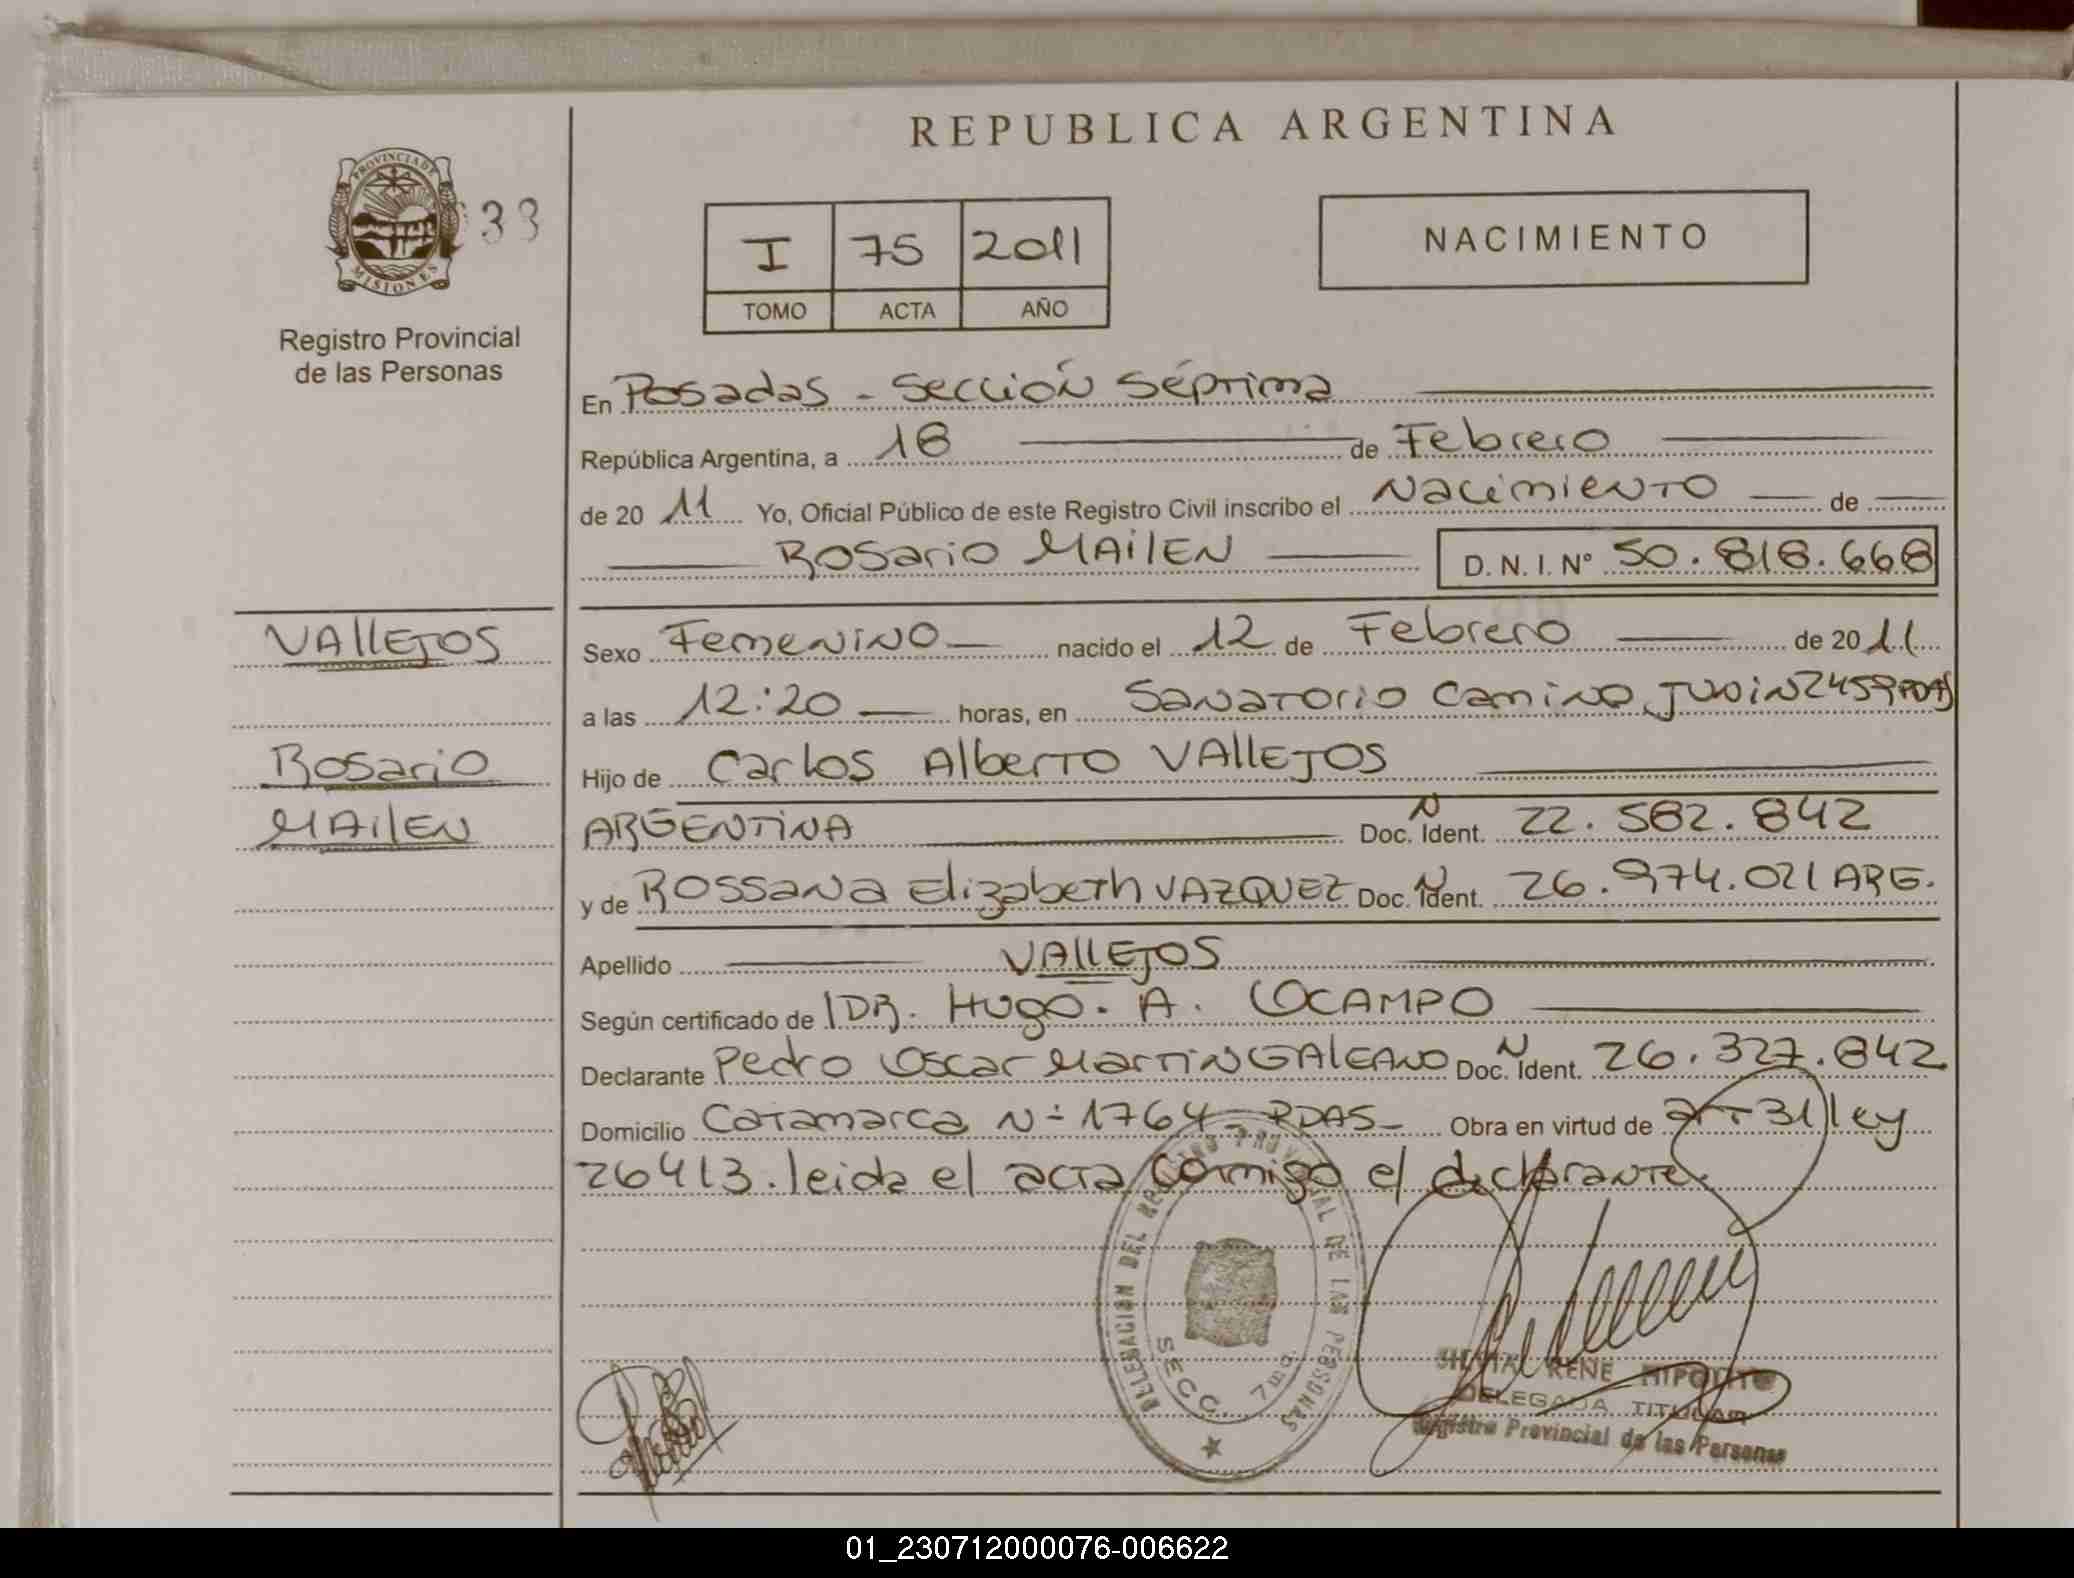 REPUBLICA ARGENTINA
PROVINCIA DE MISIONES
33
Registro Provincial
de las Personas
I 75 2011
TOMO ACTA AÑO
NACIMIENTO
En Posadas - Sección Séptima
República Argentina, a 18 de Febrero
de 20 11 Yo, Oficial Público de este Registro Civil inscribo el Nacimiento de
Rosario MAilEN D.N.I. Nº 50.818.668
VAllEJOS
Rosario
MAilEN
Sexo Femenino nacido el 12 de Febrero de 20 11
a las 12:20 horas, en Sanatorio Camino, Junin 2459 PDAS
Hijo de Carlos Alberto VAllEJOS
ARGENTINA Doc. N Ident. 22.582.842
y de Rossana Elizabeth VAZQUEZ Doc. N Ident. 26.974.021 ARG.
Apellido VAllEJOS
Según certificado de DR. Hugo. A. OCAMPO
Declarante Pedro Oscar Martin GAlEANO Doc. N Ident. 26.327.842
Domicilio Catamarca N- 1764 - PDAS - Obra en virtud de art 31 ley
26413. leida el acta conmigo el declarante.
DELEGACION DEL REGISTRO PROVINCIAL DE LAS PERSONAS
SECC. 7ma.
RENE HIPOLITO
DELEGADA TITULAR
Registro Provincial de las Personas
01_230712000076-006622